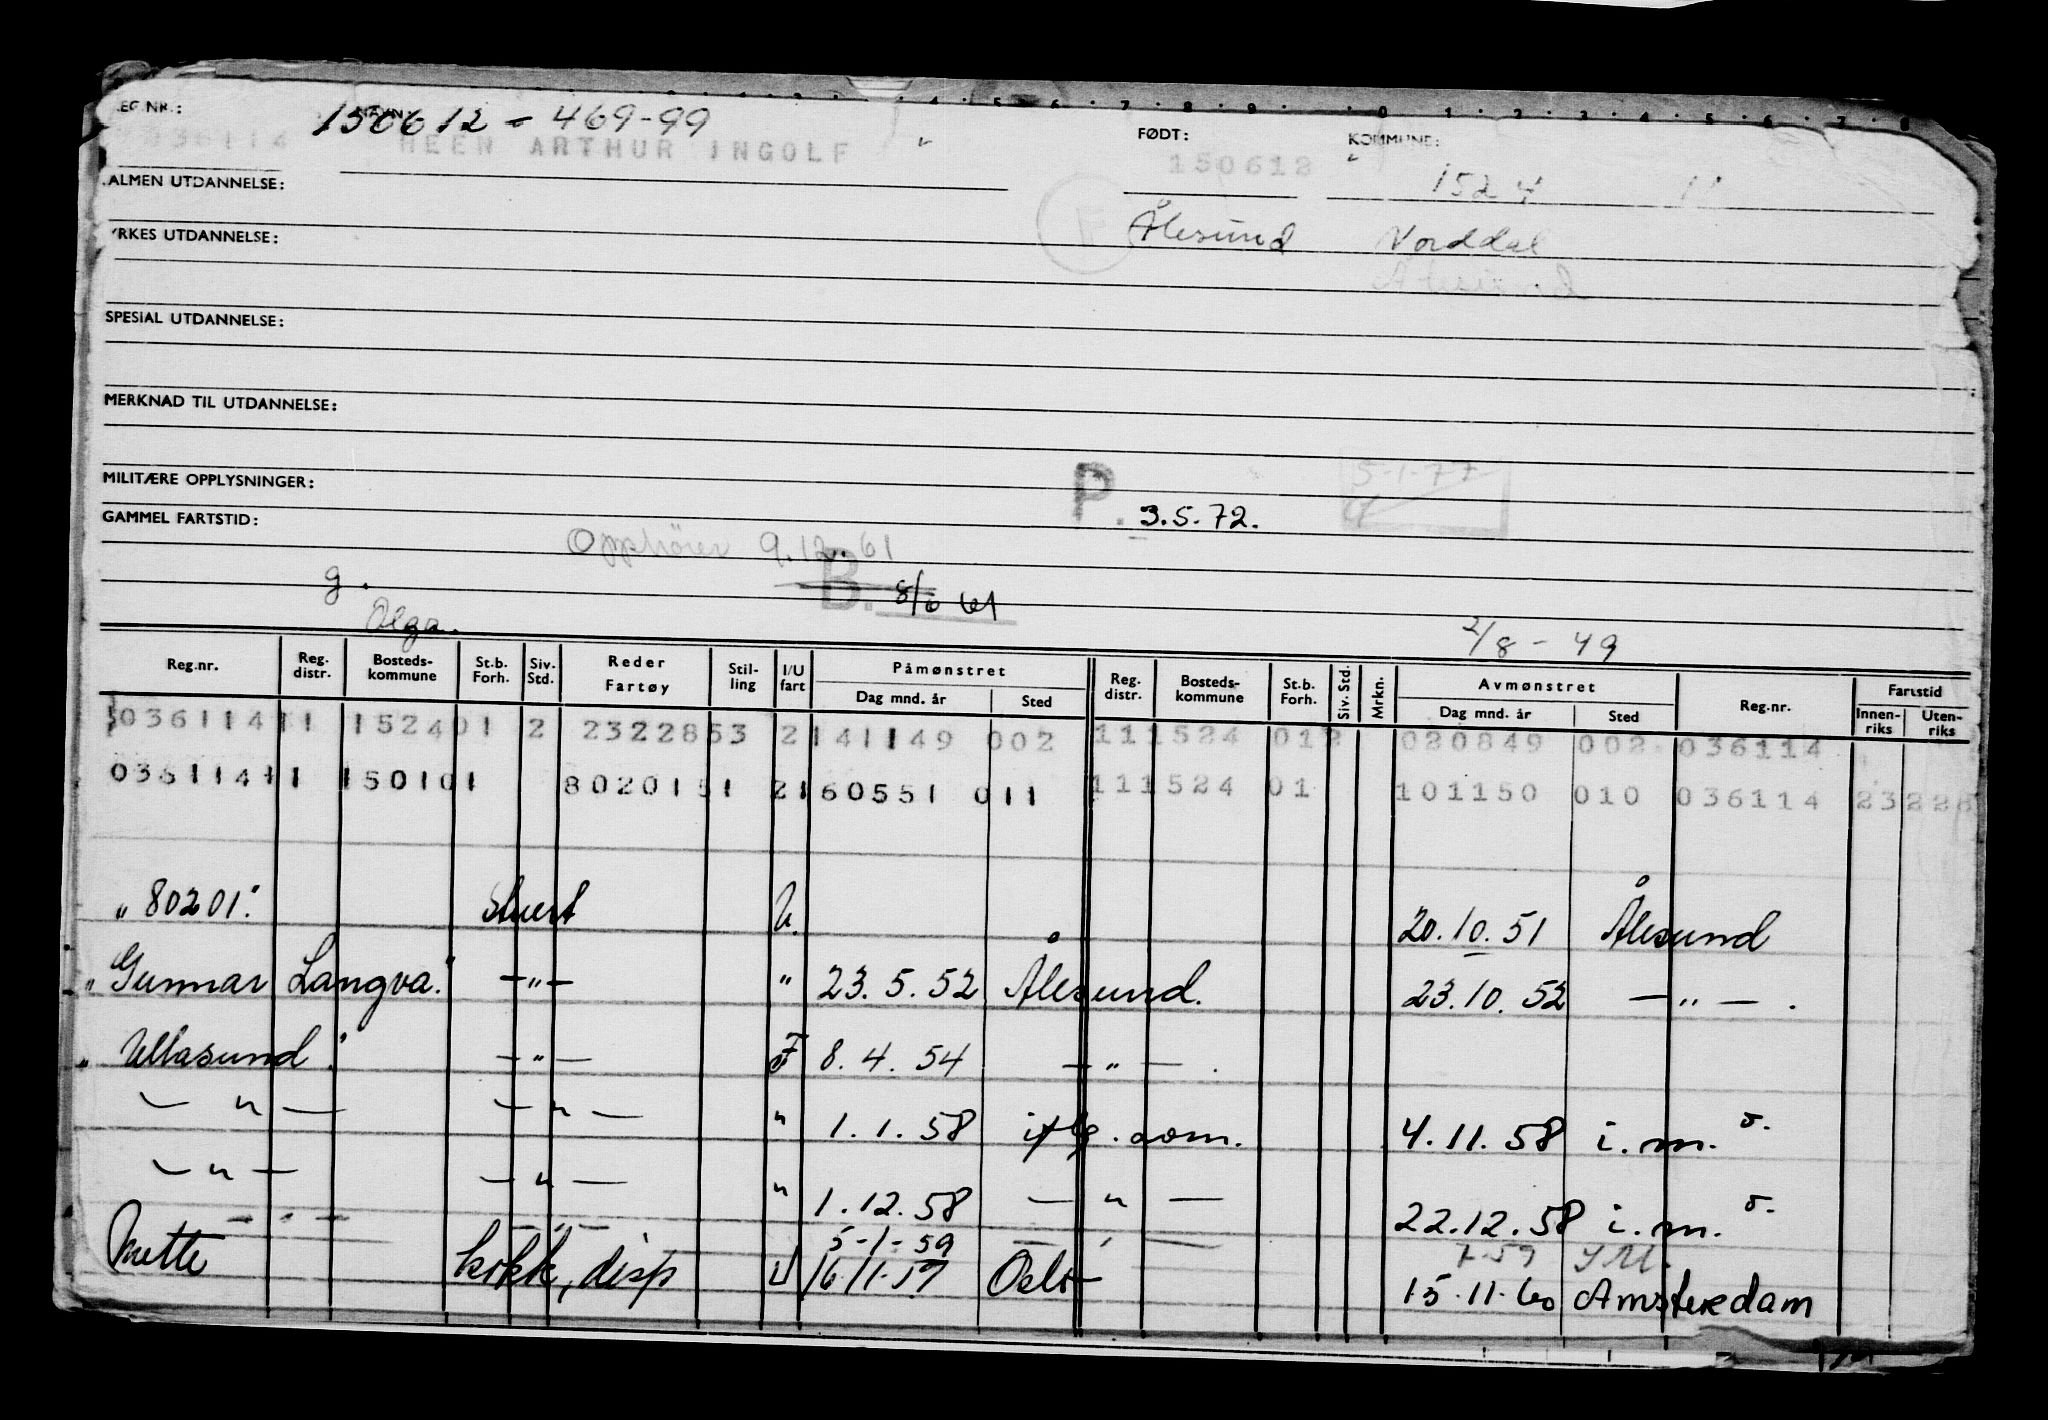 REG.NR.: 150612-469-99 FØDT: KOMMUNE:
036114 HEEN ARTHUR INGOLF 150612 1524
ALMEN UTDANNELSE:
Ålesund Norddal
YRKES UTDANNELSE:
Ålesund
SPESIAL UTDANNELSE:
MERKNAD TIL UTDANNELSE:
MILITÆRE OPPLYSNINGER: P. 3.5.72. 5-1-77
GAMMEL FARTSTID:
Opphører 9.12.61
g. B. 8/6 61
Olga. 2/8-49
Reg.nr. Reg. distr. Bosteds-kommune St.b. Forh. Siv. Std. Reder Fartøy Stil-ling I/U fart Påmønstret Dag mnd. år Sted Reg. distr. Bosteds-kommune St.b. Forh. Siv. Std. Mrkn. Avmønstret Dag mnd. år Sted Reg.nr. Fartstid Innen-riks Uten-riks
036114 11 1524 01 2 2322853 2 141149 002 11 1524 01 2 020849 002 036114
036114 11 1501 01 8020151 2 160551 011 11 1524 01 101150 010 036114 23 228
"80201." Stuert U. 20.10.51 Ålesund
"Gunnar Langva." -"- " 23.5.52 Ålesund. 23.10.52 -"-.
"Ullasund." -"- F 8.4.54 -"-.
-"- -"- " 1.1.58 iflg. aom. 4.11.58 i.m.o.
-"- -"- " 1.12.58 -"- 22.12.58 i.m.o.
-"- -"- 5-1-59 -"- 7-59
Anette kokk, disp U 16.11.59 Oslo 15.11.60 Amsterdam